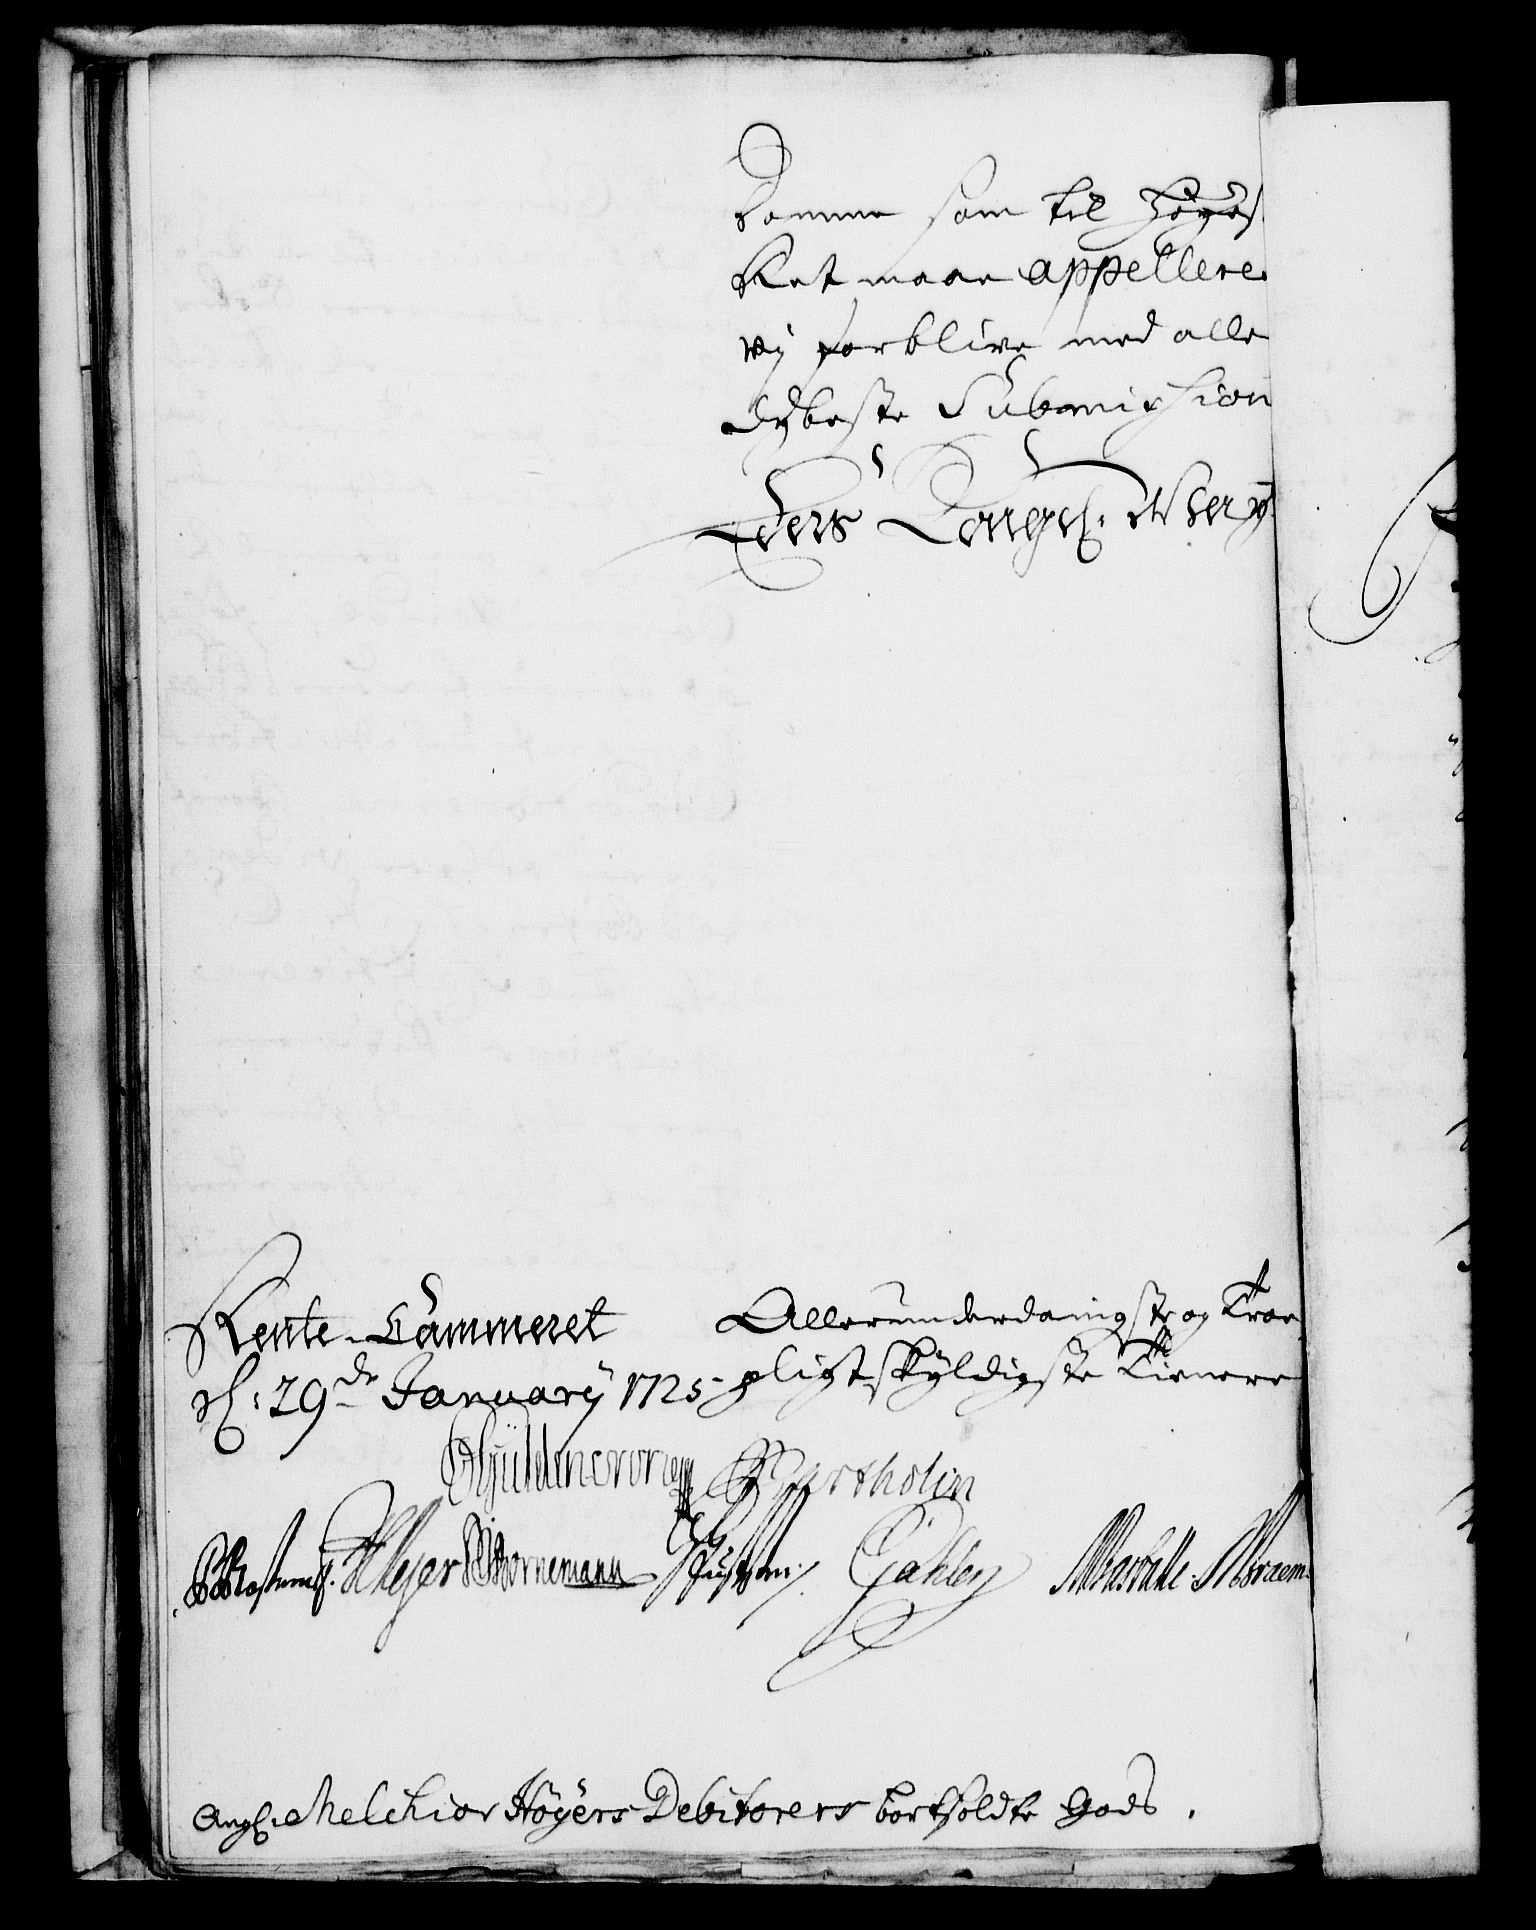 Domme som til Høyes
Ret maae appellere
vy forblive med alle
dybeste Submission
Eders Kongel. May
Rente-Cammeret
d: 29de January 1725
Allerunderdanigste og Troe
pligtskyldigste Tienere
Güldencrone Bartholin
Meyer Bornemann
Ang: Melchior Høyers Debitorers bortsoldte Gods.